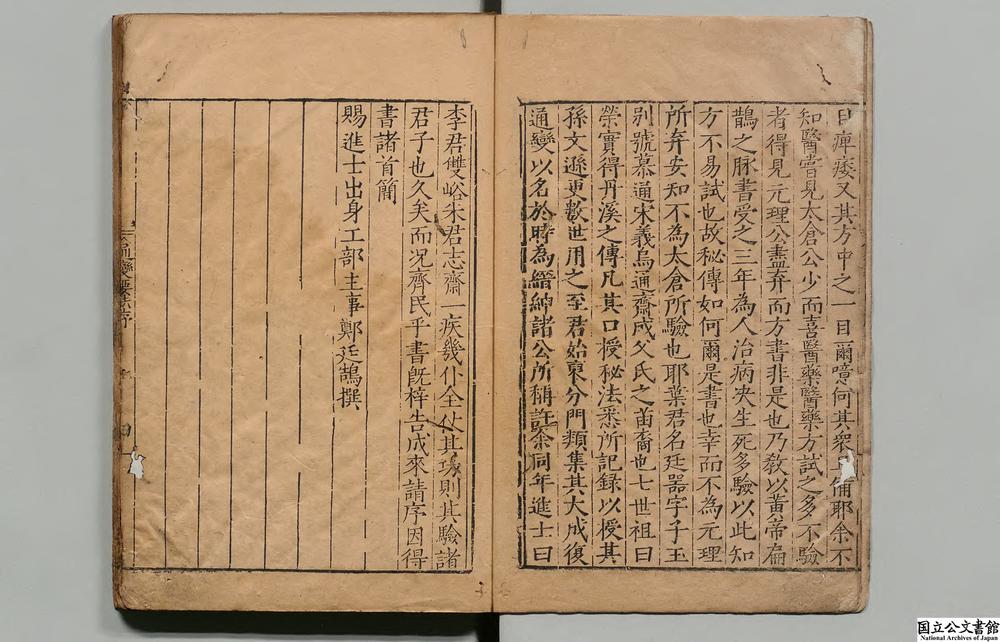 曰痺痿又其方中之一曰爾噫何其衆且備耶余不
知醫嘗見太倉公少而喜醫藥醫藥方試之多不驗
者得見元理公盡弃而方書非是也乃教以黃帝扁
鵲之脉書受之三年為人治病决生死多驗以此知
方不易試也故秘傳如何爾是書也幸而不為元理
所弃安知不為太倉所驗也耶葉君名廷器字子玉
別號慕通宋義烏通齋成父氏之苗裔也七世祖曰
榮實得丹溪之傳凡其口授秘法悉所記録以授其
孫文遜更數世用之至君始彙分門類集其大成復
通變以名於時為縉紳諸公所稱許余同年進士曰
李君雙峪朱君志齋一疾幾仆全攸其功則其驗諸
君子也久矣而況齊民乎書既梓告成來請序因得
書諸首簡
賜進士出身工部主事鄭廷鵠撰
通變要法序
国立公文書館
National Archives of Japan